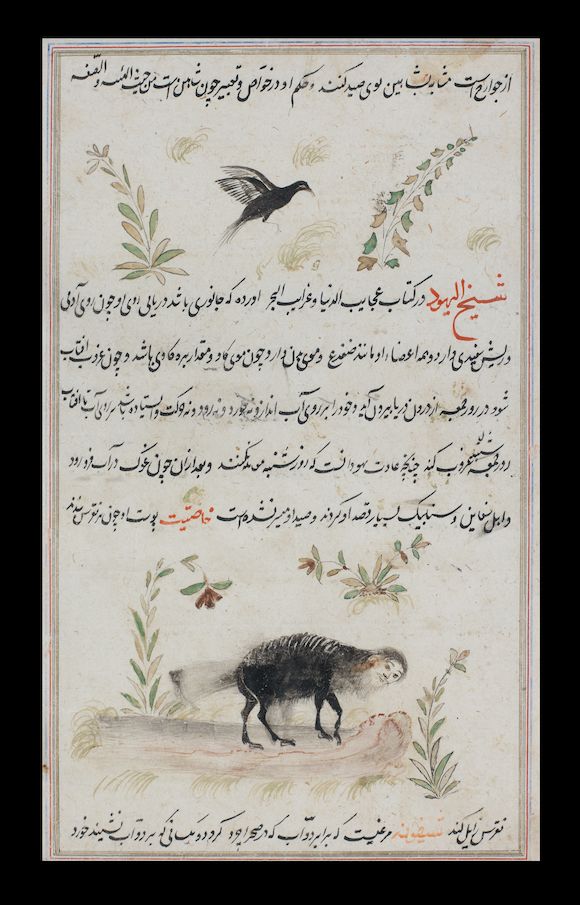 از جوارح است مشابه بشاهین بوی صید کنند و حکم او در خواص و تعبیر چون شاهین است من حیث الهیئه و الصفه
شیخ الیهود در کتاب عجایب الدنیا و غرایب البحر اورده که جانوری باشد دریایی روی او چون روی آدمی
و ریش سفیدی دارد و همه اعضاء او مانند ضفدع و موی بدن دارد چون موی گاو و مقدار بره گاوی باشد و چون غروب افتاب
شود در روز جمعه از درون دریا بیرون آید و خود را بر روی آب اندازد نه خورد و نه رود و نه حرکت و ایستاده باشد بر روی آب تا افتاب
روز شنبه غروب کند چنانچه عادت یهود است که روز شنبه صید نکنند و بعد از ان چون غوک در آب فرو رود
و اهل سفاین بسیار قصد او کردند و صید او میسر نشده است خاصیت پوست او چون بر نقرس بندند
نقرس زایل کند مرغیست که برابر دواب که در صحرا چرد گردد که بر دواب نشیند خورد